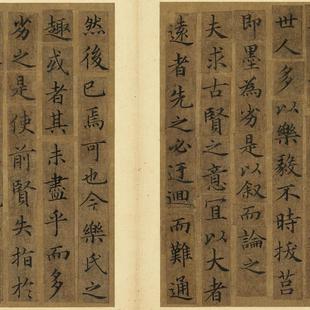 世人多以樂毅不時拔莒
即墨為劣是以叙而論之
夫求古賢之意宜以大者
遠者先之必迂迴而難通
然後已焉可也今樂氏之
趣或者其未盡乎而多
劣之是使前賢失指於